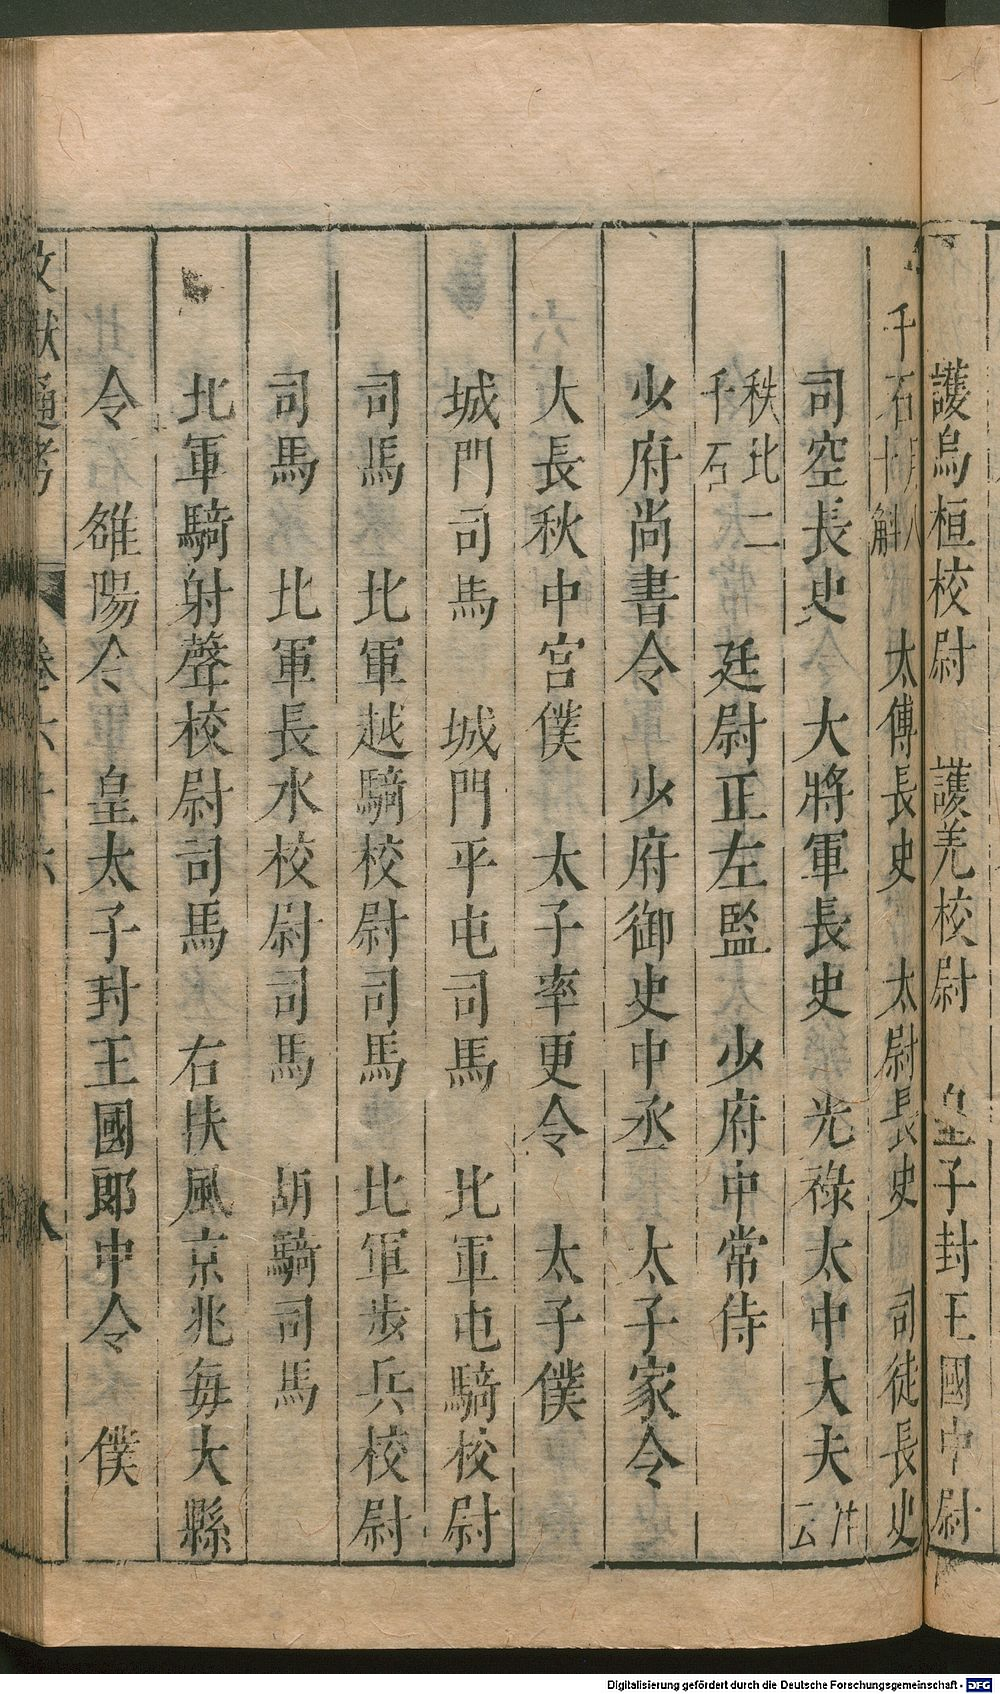 護烏桓校尉　護羌校尉　皇子封王國中尉
千石月八十斛　太傅長史　太尉長史　司徒長史
司空長史　大將軍長史　光祿太中大夫　注云
秩比二千石　廷尉正左監　少府中常侍
少府尚書令　少府御史中丞　太子家令
大長秋中宮僕　太子率更令　太子僕
城門司馬　城門平屯司馬　北軍屯騎校尉
司馬　北軍越騎校尉司馬　北軍步兵校尉
司馬　北軍長水校尉司馬　胡騎司馬
北軍騎射聲校尉司馬　右扶風京兆每大縣
令　雒陽令　皇太子封王國郎中令　僕
文獻通考　卷六十六　八
Digitalisierung gefördert durch die Deutsche Forschungsgemeinschaft - DFG